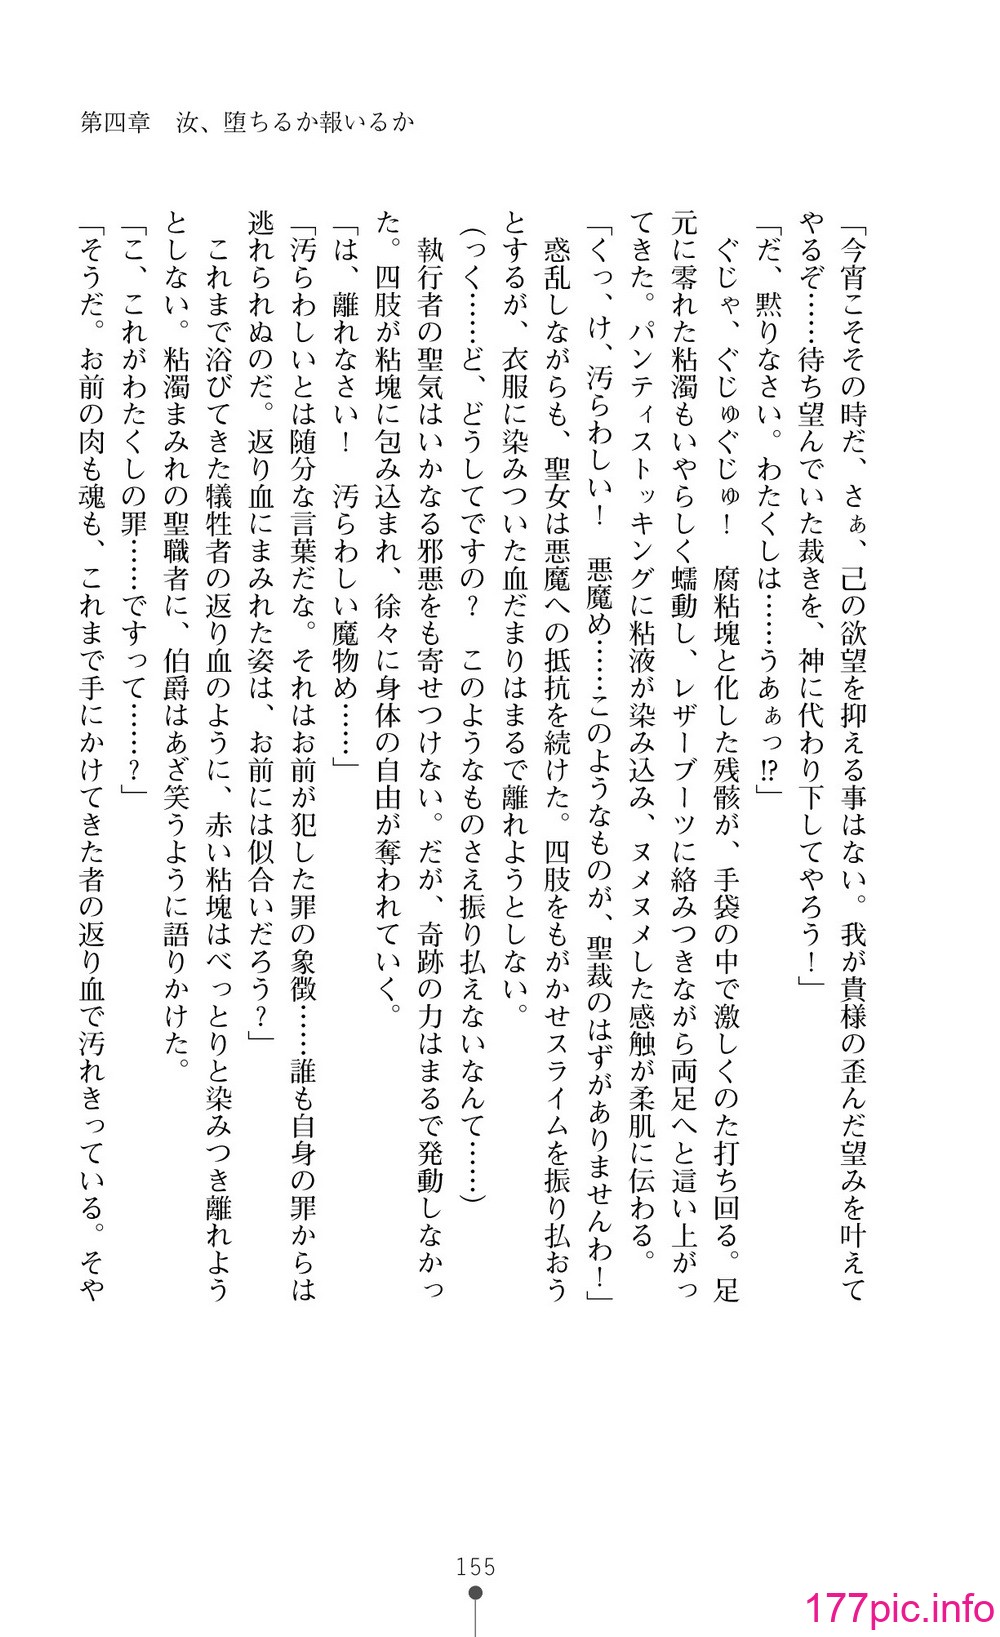 第四章　汝、堕ちるか報いるか
「今宵こそその時だ、さぁ、己の欲望を抑える事はない。我が貴様の歪んだ望みを叶えて
やるぞ……待ち望んでいた裁きを、神に代わり下してやろう！」
「だ、黙りなさい。わたくしは……うあぁっ⁉」
　ぐじゃ、ぐじゅぐじゅ！　腐粘塊と化した残骸が、手袋の中で激しくのた打ち回る。足
元に零れた粘濁もいやらしく蠕動し、レザーブーツに絡みつきながら両足へと這い上がっ
てきた。パンティストッキングに粘液が染み込み、ヌメヌメした感触が柔肌に伝わる。
「くっ、け、汚らわしい！　悪魔め……このようなものが、聖裁のはずがありませんわ！」
　惑乱しながらも、聖女は悪魔への抵抗を続けた。四肢をもがかせスライムを振り払おう
とするが、衣服に染みついた血だまりはまるで離れようとしない。
（っく……ど、どうしてですの？　このようなものさえ振り払えないなんて……）
　執行者の聖気はいかなる邪悪をも寄せつけない。だが、奇跡の力はまるで発動しなかっ
た。四肢が粘塊に包み込まれ、徐々に身体の自由が奪われていく。
「は、離れなさい！　汚らわしい魔物め……」
「汚らわしいとは随分な言葉だな。それはお前が犯した罪の象徴……誰も自身の罪からは
逃れられぬのだ。返り血にまみれた姿は、お前には似合いだろう？」
　これまで浴びてきた犠牲者の返り血のように、赤い粘塊はべっとりと染みつき離れよう
としない。粘濁まみれの聖職者に、伯爵はあざ笑うように語りかけた。
「こ、これがわたくしの罪……ですって……？」
「そうだ。お前の肉も魂も、これまで手にかけてきた者の返り血で汚れきっている。そや
155
177pic.info